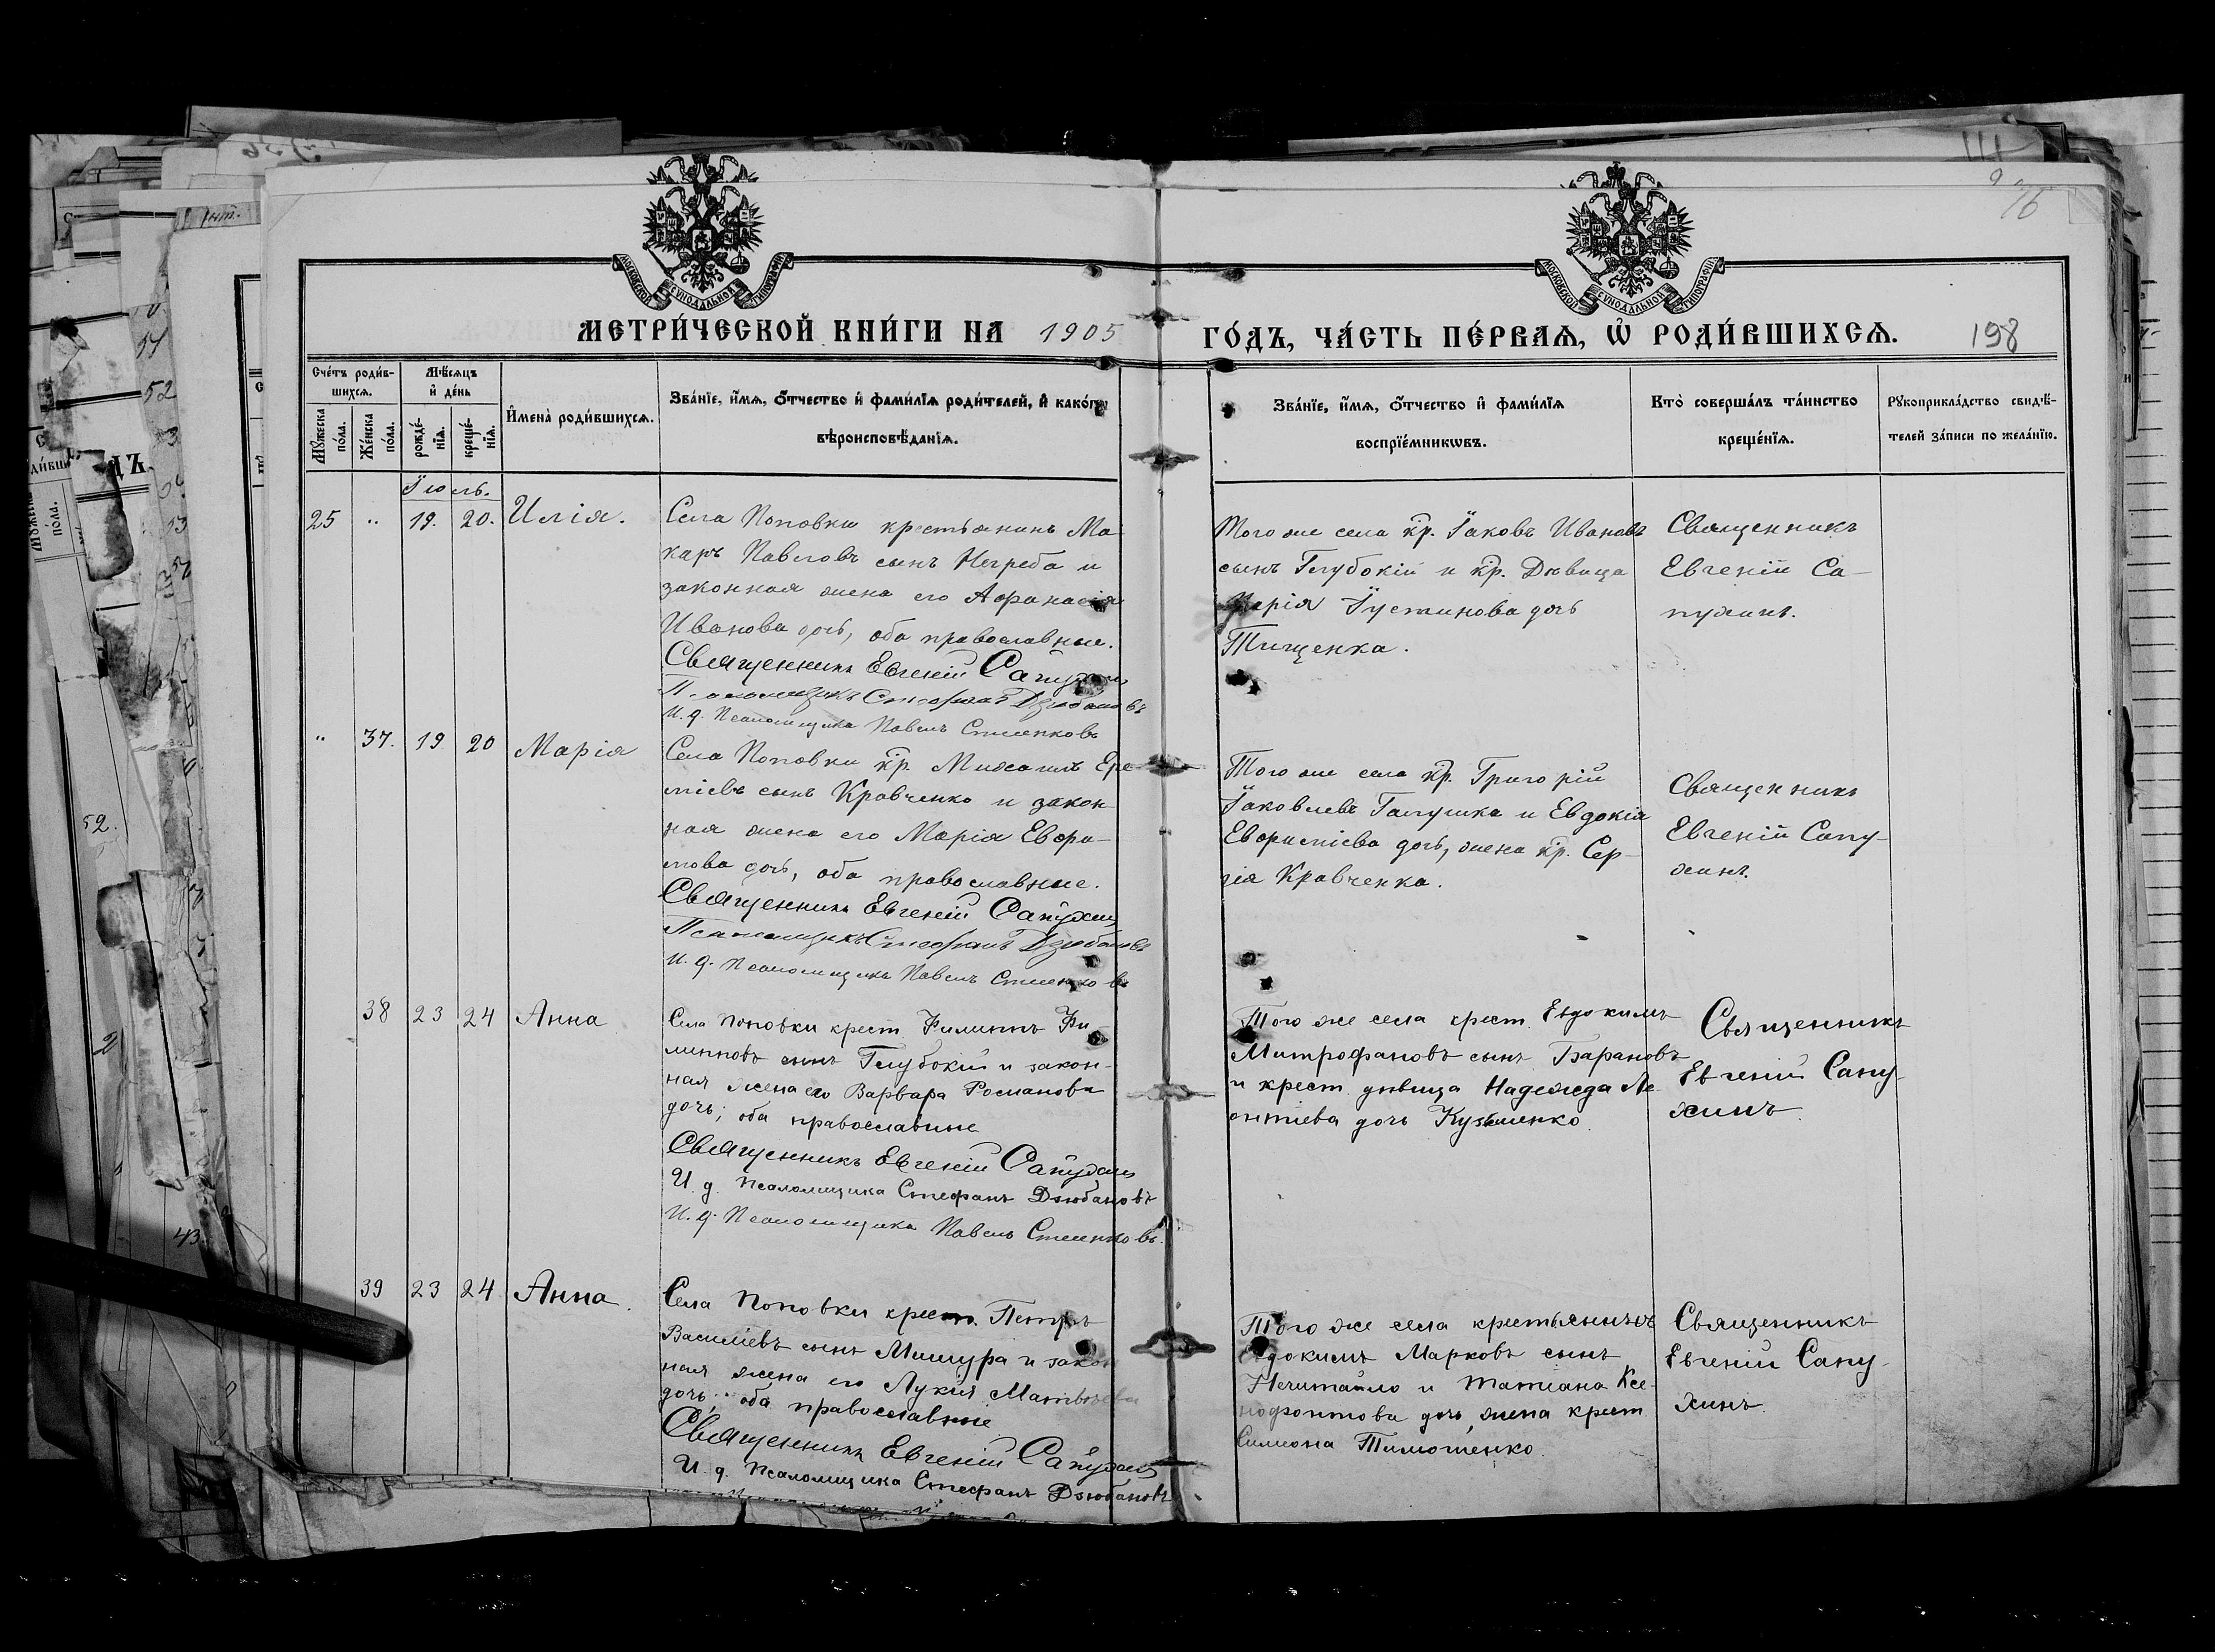 МОСКОВСКОЙ СУНОДАЛЬНОЙ ТИПОГРАФІИ
МОСКОВСКОЙ СУНОДАЛЬНОЙ ТИПОГРАФІИ
МЕТРИ́ЧЕСКОЙ КНИ́ГИ НА 1905 ГО́ДЪ, ЧА́СТЬ ПЕ́РВАѦ, Ѡ҆ РОДИ́ВШИХСѦ. 198
Сче́тъ роди́в-
шихсѧ.
Мꙋ́жеска по́ла.
Же́нска по́ла.
Мѣ́сѧцъ
и҆ де́нь
рожде́-
нїѧ.
креще́-
нїѧ.
И҆мена̀ роди́вшихсѧ.
Зва́нїе, и҆́мѧ, ѻ҆́тчество и҆ фами́лїѧ роди́телей, и҆ како́гѡ
вѣроисповѣ́данїѧ.
Зва́нїе, и҆́мѧ, ѻ҆́тчество и҆ фами́лїѧ
воспрїе́мникѡвъ.
Кто̀ соверша́лъ та́инство
креще́нїѧ.
Рꙋкоприкла́дство свидѣ́-
телей за́писи по жела́нїю.
Іюль.
25 " 19. 20. Илія.
Села Поповки крестьянинъ Ма-
каръ Павловъ сынъ Негреба и
законная жена его Афанасія
Иванова дочь, оба православные.
Священникъ Евгеній Сапухин
Псаломщикъ Стефанъ Дзюбановъ
И. д. Псаломщика Павелъ Стиенковъ
Того же села кр. Іаковъ Ивановъ
сынъ Глубокій и кр. Дѣвица
Марія Іустинова дочь
Тищенка.
Священникъ
Евгеній Са-
пухинъ.
" 37. 19 20 Марія
Села Поповки кр. Михаилъ Ере-
міевъ сынъ Кравченко и закон
ная жена его Марія Евфи-
мова дочь, оба православные.
Священникъ Евгеній Сапухин
Псаломщикъ Стефанъ Дзюбановъ
И. д. Псаломщика Павелъ Стиенковъ
Того же села кр. Григорій
Іаковлевъ Галушка и Евдокія
Евфиміева дочь, жена кр. Сер-
гія Кравченка.
Священникъ
Евгеній Сапу-
хинъ.
38 23 24 Анна
Села Поповки крест. Филиппъ Фи-
липповъ сынъ Глубокій и закон-
ная жена его Варвара Романова
дочь; оба православные
Священникъ Евгеній Сапухин
И. д. псаломщика Стефанъ Дзюбановъ
И. д. Псаломщика Павелъ Стиенковъ.
Того же села крест. Евдокимъ
Митрофановъ сынъ Барановъ
и крест. дѣвица Надежда Ле-
онтіева дочь Кузьменко.
Священникъ
Евгеній Сапу-
хинъ.
39 23 24 Анна.
Села Поповки крест. Петръ
Василіевъ сынъ Мишура и закон
ная жена его Лукія Матвѣева
дочь; оба православные
Священникъ Евгеній Сапухин
И. д. псаломщика Стефанъ Дзюбановъ
Того же села крестьянинъ
Евдокимъ Марковъ сынъ
Нечитайло и Татіана Ксе-
нофонтова дочь, жена крест
Симеона Тимошенко.
Священникъ
Евгеній Сапу-
хинъ.